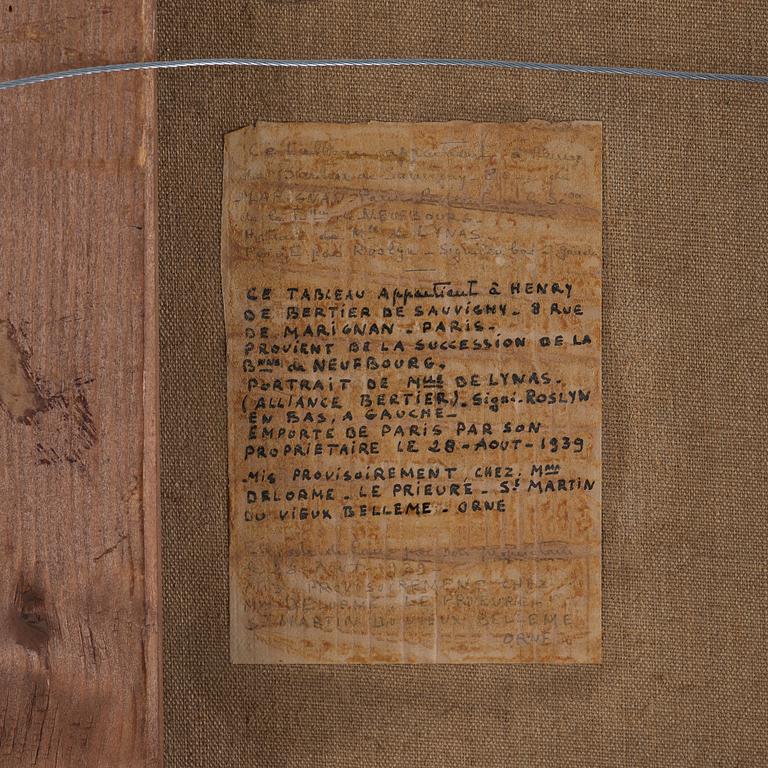 Ce tableau appartient à Henry
de Bertier de Sauvigny - 8 rue de
MARIGNAN - Paris - Provient de la
de la Bnne de NEUFBOURG -
de Mlle de LYNAS.
par Roslyn - Signé en bas à gauche
CE TABLEAU Appartient à HENRY
DE BERTIER DE SAUVIGNY - 8 RUE
DE MARIGNAN - PARIS -
PROVIENT DE LA SUCCESSION DE LA
Bnne de NEUFBOURG.
PORTRAIT DE MLLE DE LYNAS.
(ALLIANCE BERTIER). Signé. ROSLYN
EN BAS, A GAUCHE -
EMPORTE DE PARIS PAR SON
PROPRIETAIRE LE 28 - AOUT - 1939
MIS PROVISOIREMENT CHEZ: MME
DELORME - LE PRIEURÉ - ST MARTIN
DU VIEUX BELLEME - ORNE
de Paris par son propriétaire
1939
MIS PROVISOIREMENT CHEZ
MME DELORME - LE PRIEURÉ -
ST MARTIN DU VIEUX BELLEME
ORNE